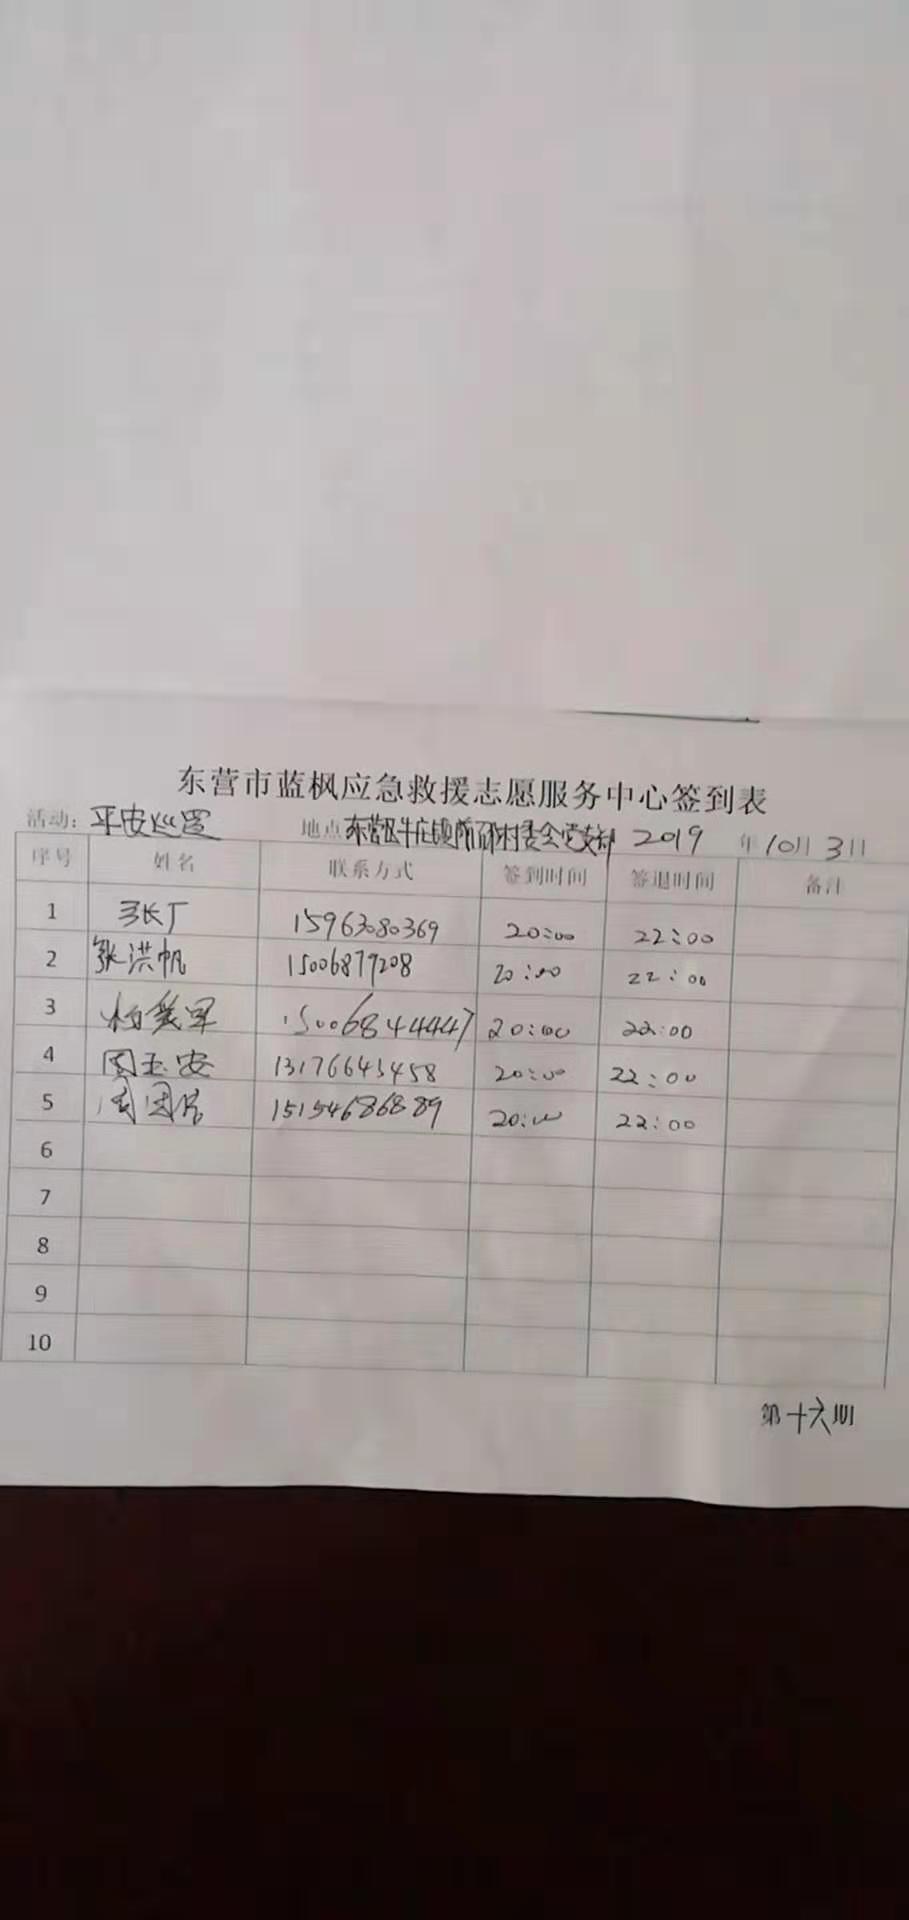 东营市蓝枫应急救援志愿服务中心签到表
活动: 平安巡逻 地点 东营区牛庄镇前 村委会党支部 2019 年 10月 3日
序号 姓名 联系方式 签到时间 签退时间 备注
1 张广 15963080369 20:00 22:00
2 张洪帆 15006879208 20:00 22:00
3 15006844447 20:00 22:00
4 周玉安 13176643458 20:00 22:00
5 周 15154686889 20:00 22:00
6
7
8
9
10
第十六期